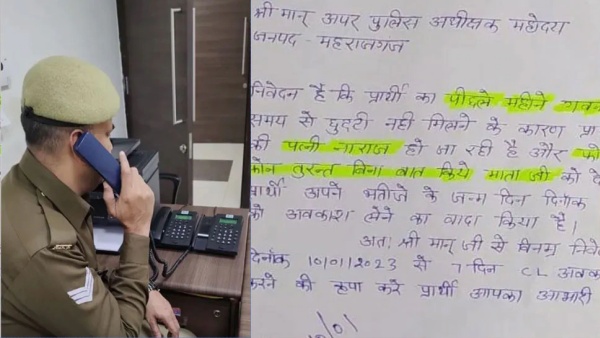 श्री मान् अपर पुलिस अधीक्षक महोदय
जनपद - महराजगंज
निवेदन है कि प्रार्थी का पीछले महीने गवन
समय से छुट्टी नही मिलने के कारण प्रा
की पत्नी नाराज हो जा रही है और फो
फोन तुरन्त बिना बात किये माता जी को दे
प्रार्थी अपने भतीजे के जन्म दिन दिनांक
को अवकाश लेने का वादा किया है।
अतः श्री मान् जी से विनम्र निवे
दिनांक 10/01/2023 से 7 दिन CL अवक
करने की कृपा करे प्रार्थी आपका आभारी